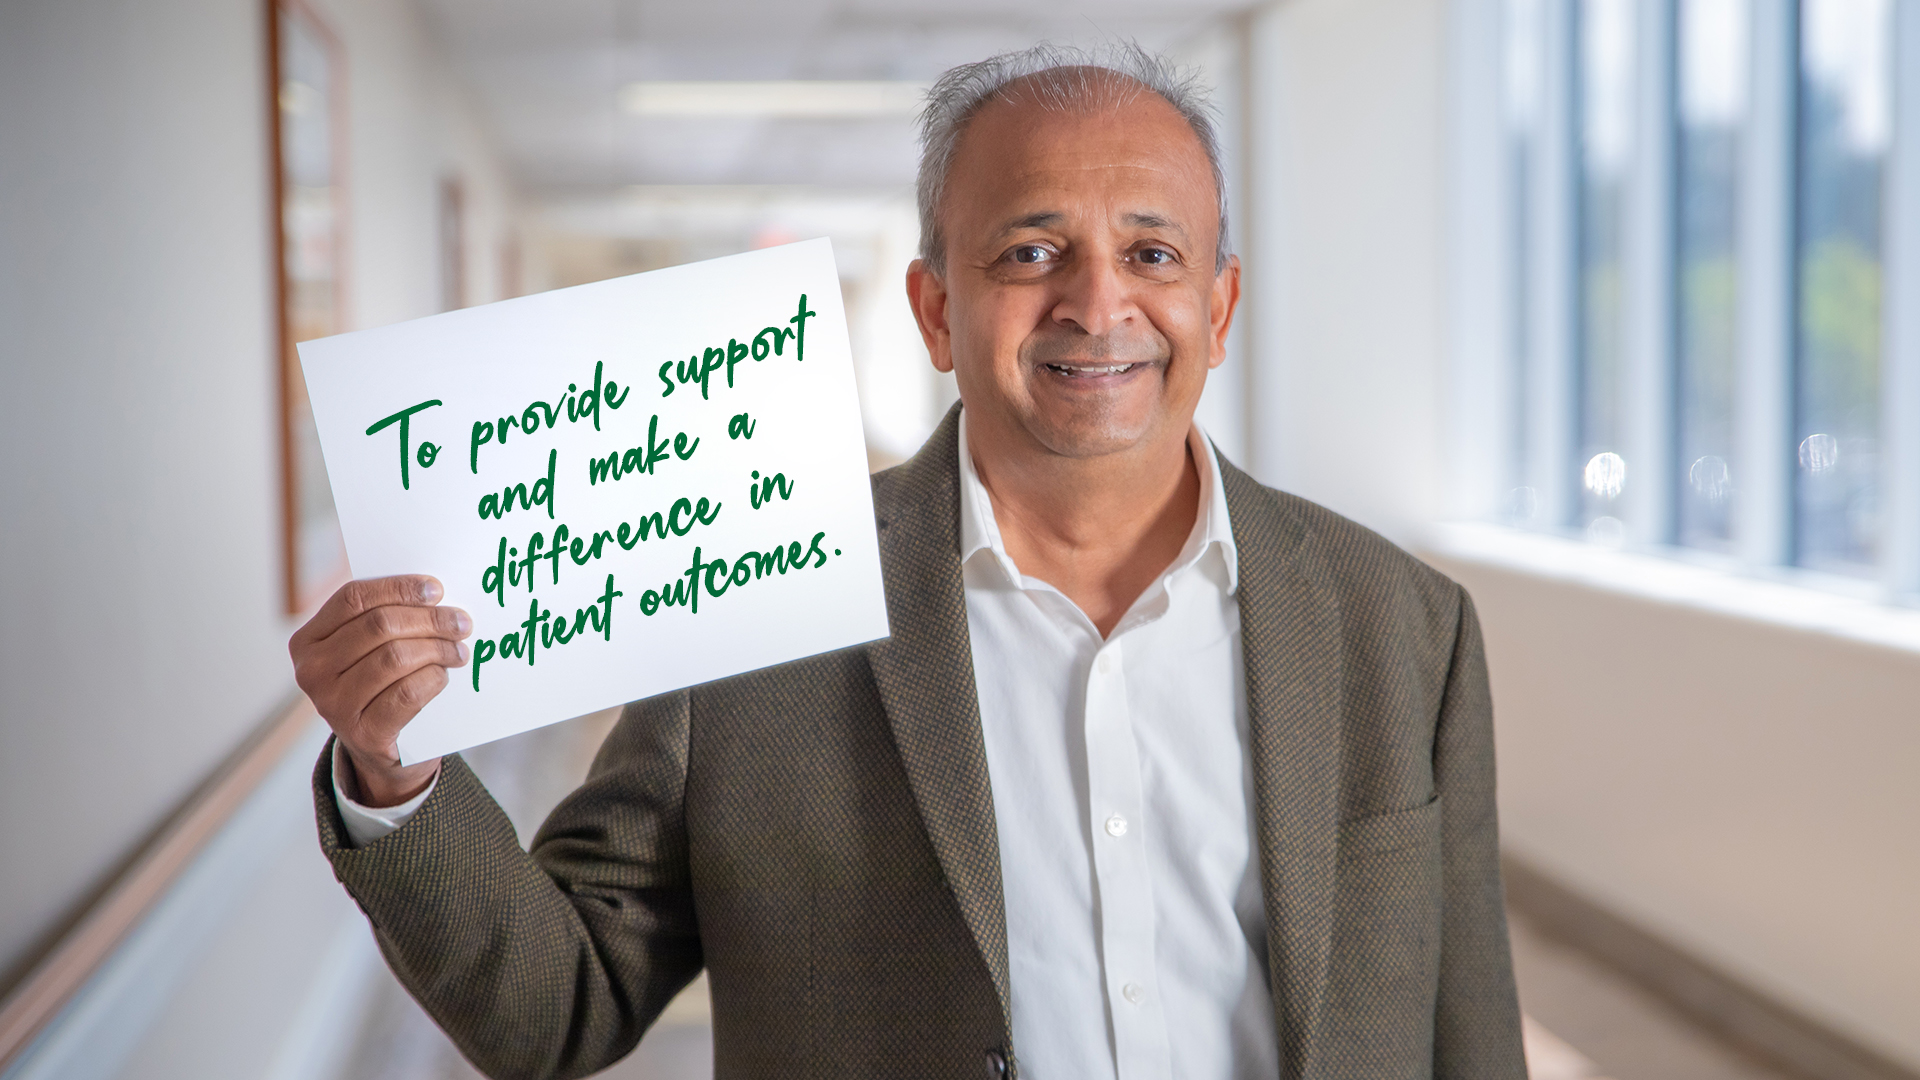 To provide support
and make a
difference in
patient outcomes.